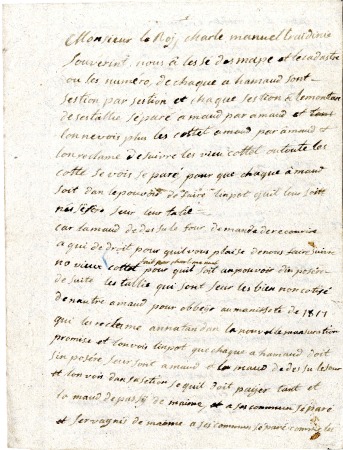 Monsieur le Roj, charle manuel le
Souverint, nous à les sé des mape et le cadastre
ou les numero, de chaque a hamaud sont
sestion par sestion et chaque sestion à le montan
de sestallie séparé a maud par amaud et
lon nevois plus les cottet amaud par amaud et
lon reclame de suivre les vieu cottet ou toute les
cotte se vois se paré pour que chaque à maud
soit dan le pouvoir de linpot quil leur soit
seur leur
car lamaud de dessu le four demande de recourire
a qui de droit pour quil vous plaise de nous fair suivre
no vieux cottet pour quil soit au pouvoir din poser
de suite les tallie qui sont seur les bien
de nautre amaud pour obbeyr au manifeste de 1817
qui les reclame annatandan la nouvelle mansuration
promise et lon vois linpot que chaque a hamaud doit
sin posére seur sont amaud et la maud de desu le four
et lon vois dan sa sestion se quil doit paÿer tant et
la maud de passÿ de maime, et a ses commun séparé
et servagnes de maime a ses commun séparé comme les